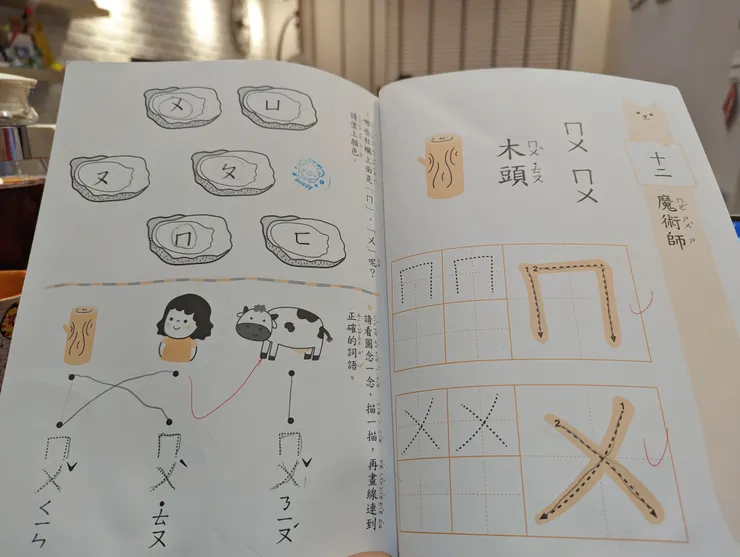 十二
魔術師
ㄇㄛˊ ㄕㄨˋ ㄕ
ㄇㄨ
ㄇㄨ
木頭
ㄇㄨˋ ˙ㄊㄡ
ㄇ ㄇ 1 2 ㄇ
ㄨ ㄨ 2 1 ㄨ
哪些牡蠣上面是「ㄇ」、「ㄨ」呢?
請塗上顏色。
ㄨ ㄩ
ㄡ ㄆ
ㄇ ㄈ
請看圖念一念,描一描,再畫線連到
正確的詞語。
ㄇㄨˇ ㄑㄧㄣ
ㄇㄨˋ ˙ㄊㄡ
ㄇㄨˇ ㄋㄧㄡˊ